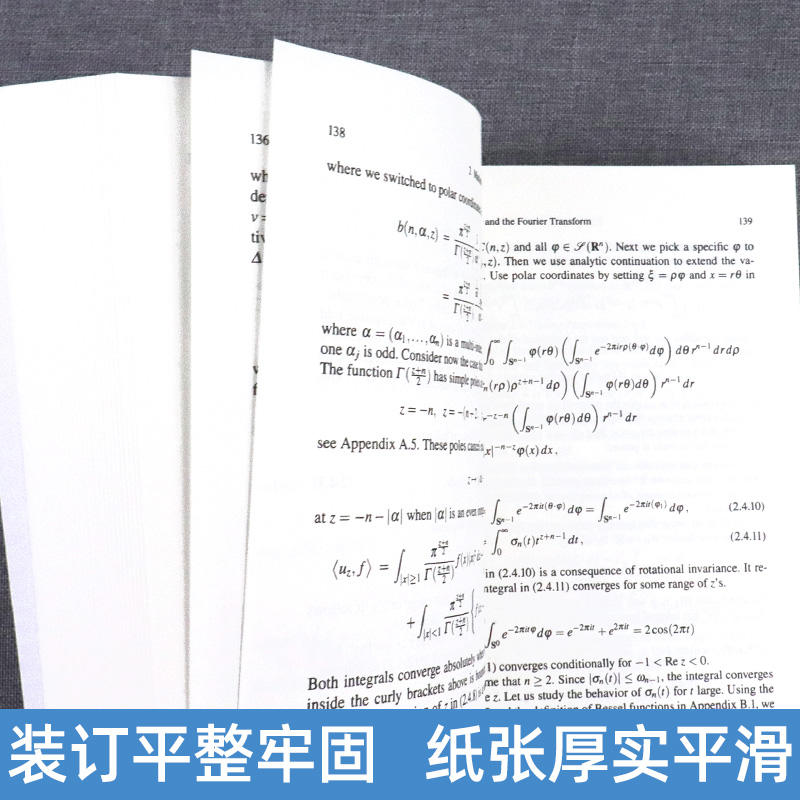 136
wh
de
v =
tiv
Δ
138
where we switched to polar coordinates
b(n,α,z) = π^{\frac{z+n}{2}} / Γ(\frac{z+n}{2})
= π^{\frac{z+n}{2}} / Γ(\frac{z+n}{2})
where α = (α_1,…,α_n) is a multi-
one α_j is odd. Consider now the case
The function Γ(\frac{z+n}{2}) has simple poles
z = −n, z = −(n+2)
see Appendix A.5. These poles
at z = −n − |α| when |α| is an even
⟨u_z, f⟩ = ∫_{|x|≥1} \frac{π^{\frac{z+n}{2}}}{Γ(\frac{z+n}{2})} f(x)|x|^z
+ ∫_{|x|<1} \frac{π^{\frac{z+n}{2}}}{Γ(\frac{z+n}{2})} {
Both integrals converge absolutely
inside the curly brackets above is
of z in (2.4.8) is
and the Fourier Transform 139
(n,z) and all φ ∈ 𝒮(R^n). Next we pick a specific φ to
,z). Then we use analytic continuation to extend the va-
. Use polar coordinates by setting ξ = ρφ and x = rθ in
∫_0^∞ ∫_{S^{n−1}} φ(rθ) (∫_{S^{n−1}} e^{−2πirρ(θ·φ)} dφ) dθ r^{n−1} dr dρ
_n(rρ)ρ^{z+n−1} dρ) (∫_{S^{n−1}} φ(rθ)dθ) r^{n−1} dr
r^{−z−n} (∫_{S^{n−1}} φ(rθ)dθ) r^{n−1} dr
|x|^{−n−z} φ(x) dx,
∫_{S^{n−1}} e^{−2πit(θ·φ)} dφ = ∫_{S^{n−1}} e^{−2πit(φ_1)} dφ, (2.4.10)
= ∫_0^∞ σ_n(t)t^{z+n−1} dt, (2.4.11)
in (2.4.10) is a consequence of rotational invariance. It re-
ntegral in (2.4.11) converges for some range of z's.
∫_{S^0} e^{−2πitφ} dφ = e^{−2πit} + e^{2πit} = 2cos(2πt)
1) converges conditionally for −1 < Re z < 0.
me that n ≥ 2. Since |σ_n(t)| ≤ ω_{n−1}, the integral converges
e z. Let us study the behavior of σ_n(t) for t large. Using the
the definition of Bessel functions in Appendix B.1, we
装订平整牢固 纸张厚实平滑